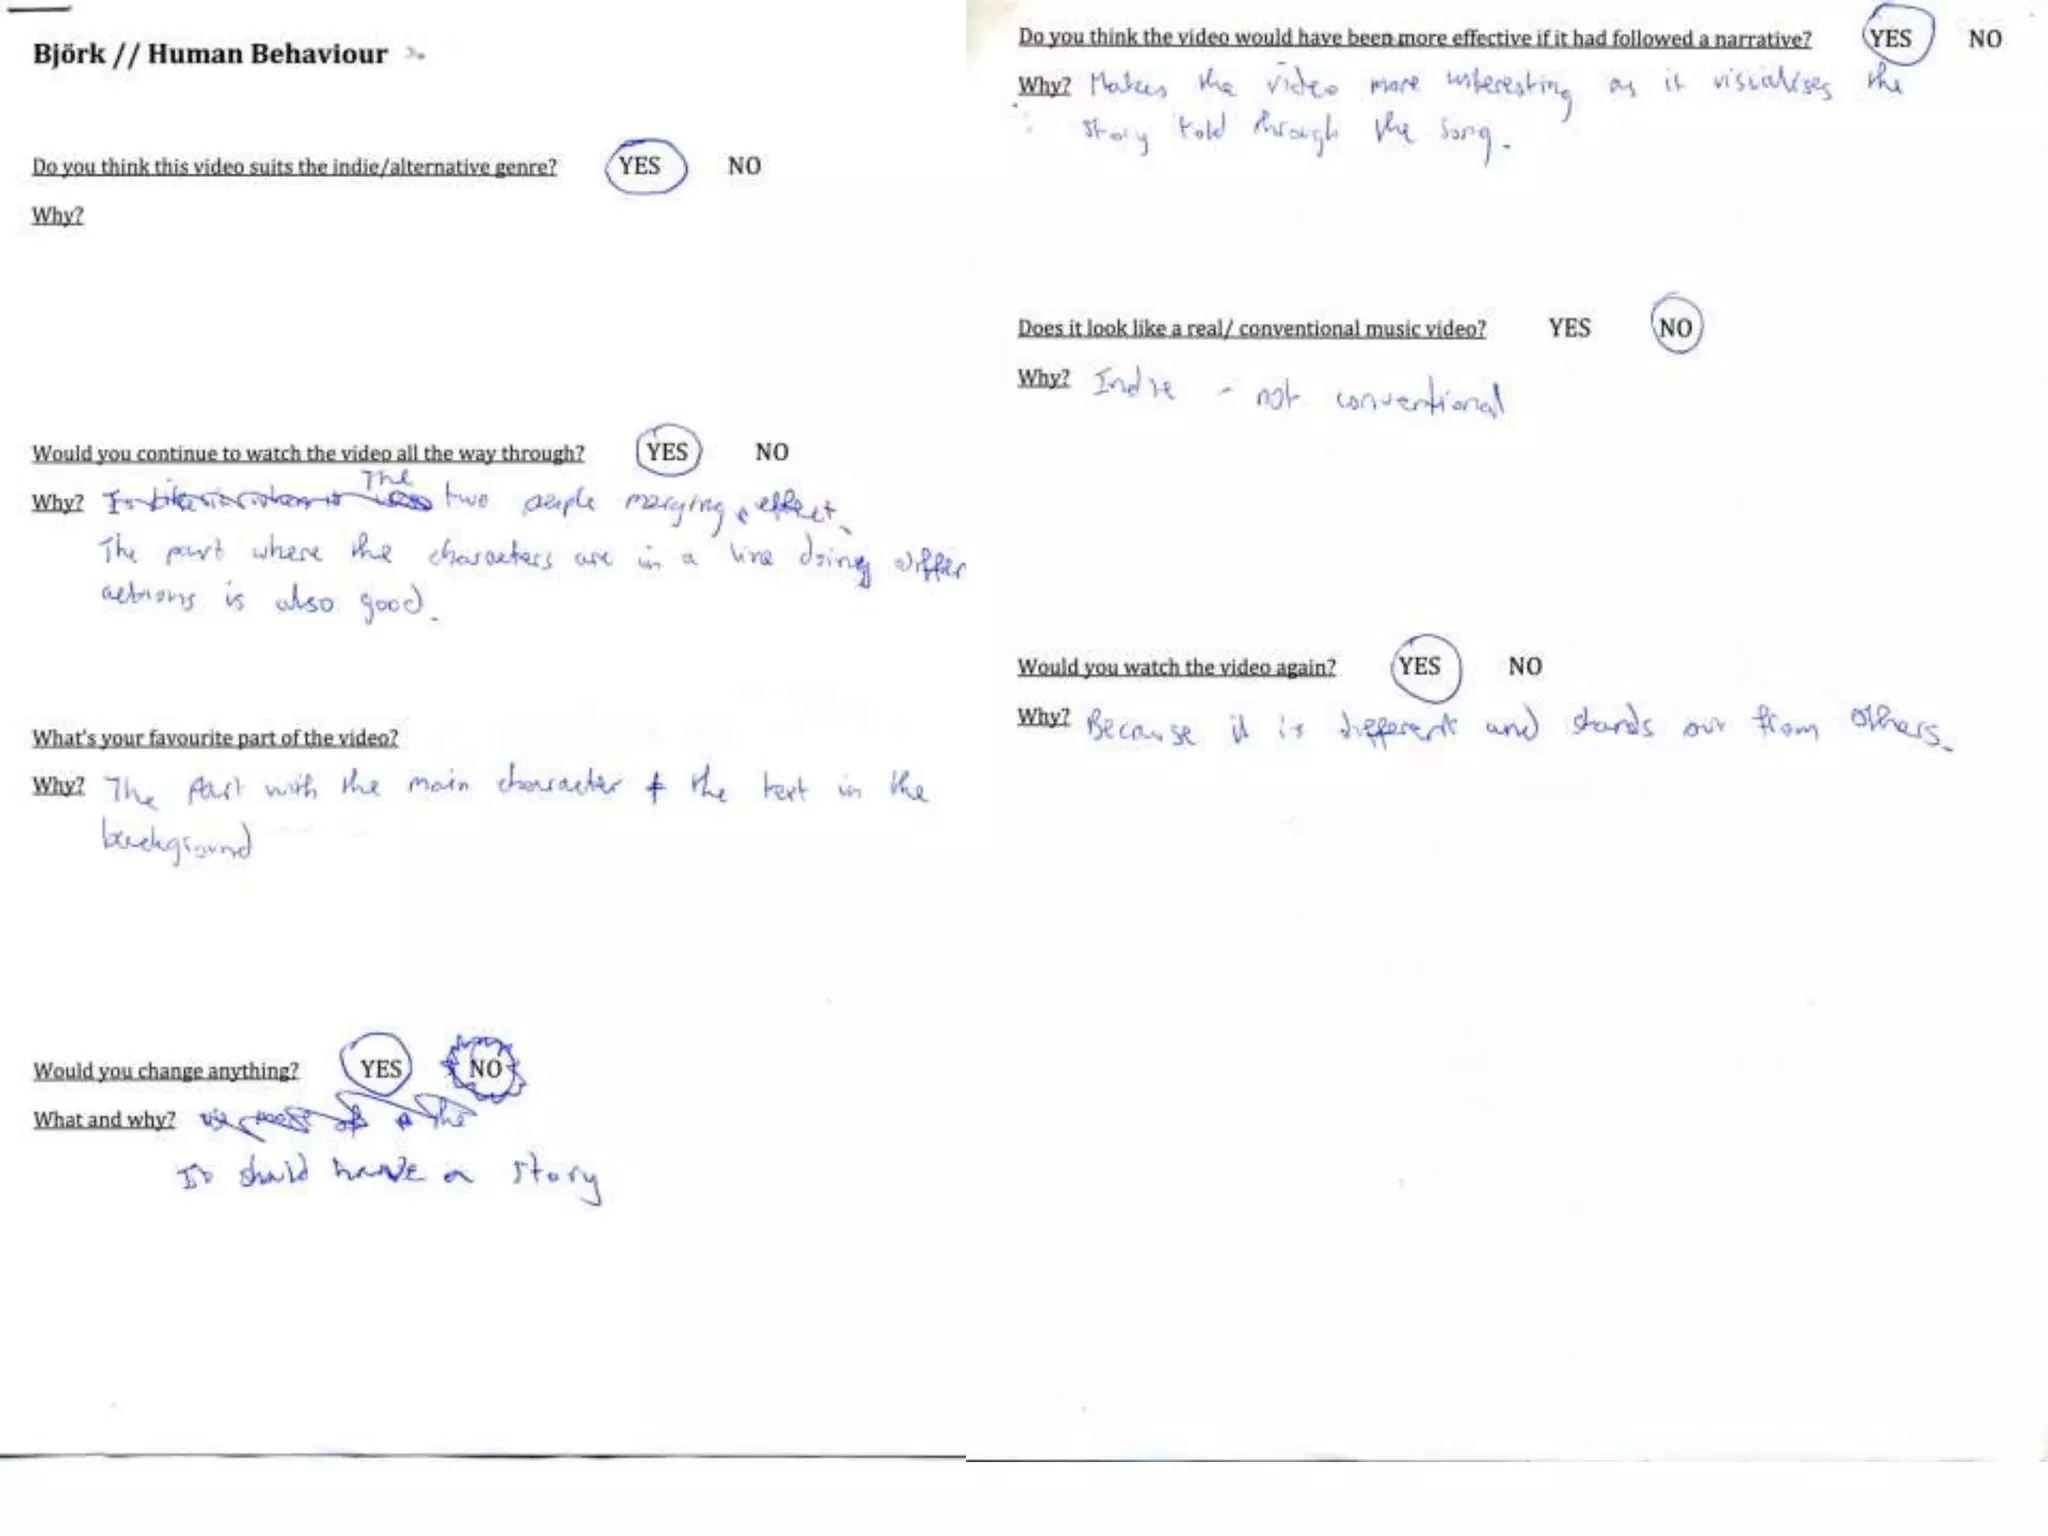 Björk // Human Behaviour
Do you think this video suits the indie/alternative genre? YES NO
Why?
Would you continue to watch the video all the way through? YES NO
The
Why? two people merging effect.
The part where the characters are in a line doing differ
actions is also good.
What's your favourite part of the video?
Why? The part with the main character & the text in the
background
Would you change anything? YES NO
What and why? the
It should have a story
Do you think the video would have been more effective if it had followed a narrative? YES NO
Why? Makes the video more interesting as it visualises the
story told through the song.
Does it look like a real/ conventional music video? YES NO
Why? Indie - not conventional
Would you watch the video again? YES NO
Why? Because it is different and stands out from others.